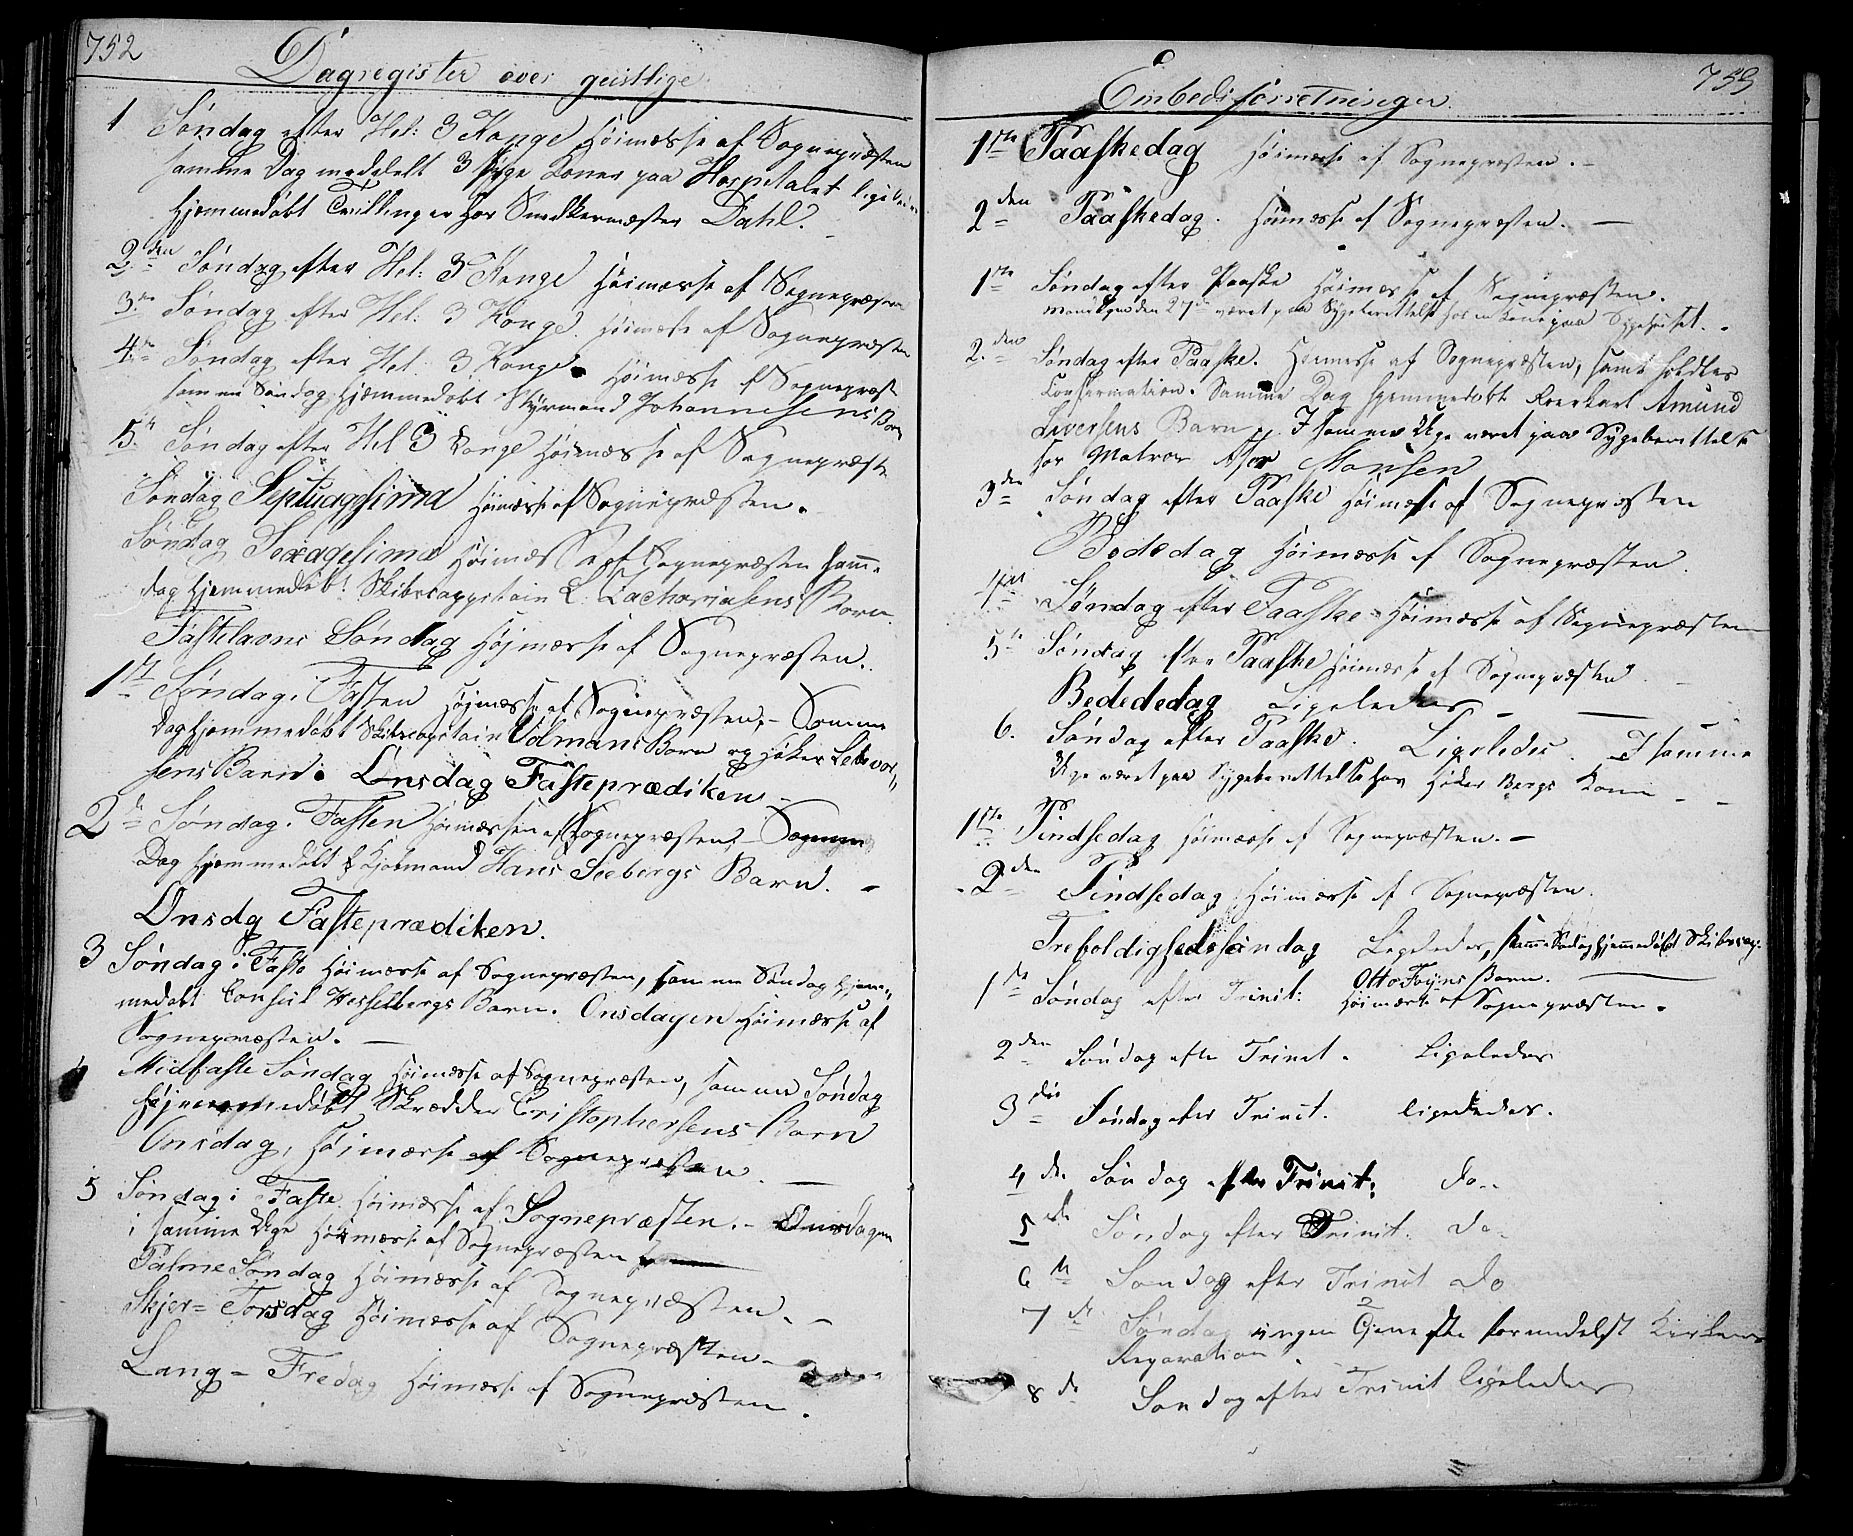 752
Dagregister over geistlige
1 Søndag efter Hel: 3 Konge Høimæsse af Sognepræsten
samme Dag meddelt 3 syge Koner paa Hospitalet
hjemmedøbt Tvillinger hos Snedkermester Dahl.
2den Søndag efter Hel: 3 Konge Høimæsse af Sognepræsten
3die Søndag efter Hel: 3 Konge. Høimæsse af Sognepræsten
4de Søndag efter Hel: 3 Konge. Høimæsse af Sognepræst
samme Søndag hjemmedøbt Styrmand Johannesens Barn
5te Søndag efter Hel 3 Konge Høimæsse af Sognepræste
Søndag Septuagesima Høimæsse af Sognepræsten.
Søndag Sexagesima Høimæsse af Sognepræsten samme
dag hjemmedøbt Skibscapitain L. Zachariasens Barn.
Fastelavns Søndag Højmæsse af Sognepræsten.
1ste Søndag i Fasten Højmæsse af Sognepræsten, – Samme
Dag hjemmedøbt Skibscapitain Volmans Barn og Høker
sens Barn. Onsdag Fasteprædiken –
2den Søndag i Fasten Høimæssen af Sognepræsten, – Samme
Dag hjemmedøbt Kjøbmand Hans Seebergs Barn. –
Onsdg Fasteprædiken.
3 Søndag i Faste Høimæsse af Sognepræsten, samme Søndag hjem-
medøbt Consul Hesselbergs Barn. Onsdagen Høimæsse af
Sognepræsten. –
Midfaste Søndag Høimæsse af Sognepræsten, samme Søndag
hjemmedøbt Skrædder Cristophersens Barn
Onsdag, Høimæsse af Sognepræsten. –
5 Søndag i Faste. Høimæsse af Sognepræsten. – Onsdagen
i samme Uge Høimæsse af Sognepræsten
Palme Søndag Høimæsse af Sognepræsten. –
Skjer= Torsdag Høimæsse af Sognepræsten –
Lang – Fredag Høimæsse af Sognepræsten.
753
Embedsforretninger.
1ste Paaskedag Høimæsse af Sognepræsten. –
2den Paaskedag. Høimæsse af Sognepræsten. –
1ste Søndag efter Paaske Høimæsse af Sognepræsten.
den 27de været paa Sygeberettelse hos en Kone paa Sygehuset. –
2den Søndag efter Paaske. Høimæsse af Sognepræsten, samt holdtes
Confirmation. Samme Dag hjemmedøbt Amund
Liversens Barn. I samme Uge været paa Sygeberettelse
hos Matros Monsen
3die Søndag efter Paaske Høimæsse af Sognepræsten
Bededag Høimæsse af Sognepræsten.
4de Søndag efter Paaske – Høimæsse af Sognepræsten
5te Søndag efter Paaske Høimæsse af Sognepræsten –
Bedededag Ligeledes –
6. Søndag efter Paaske. Ligeledes. I samme
Uge været paa Sygeberettelse hos Høker Bergs Kone – –
1ste Pindsedag Høimæsse af Sognepræsten. –
2den Pindsedag Høimæsse af Sognepræsten.
Trefoldighedssøndag Ligeledes, samme Søndag hjemmedøbt Skibscap:
Otto Foÿns Barn.
1ste Søndag efter Trinit: Høimæsse af Sognepræsten.
2den Søndag efter Trinit. Ligeledes
3die Søndag efter Trinit. ligeledes.
4de Søndag efter Trinit: do.
5te Søndag efter Trinit. do.
6te Søndag efter Trinit do
7de Søndag ingen Tjeneste formedelst Kirkens
Reparation.
8de Søndag efter Trinit ligeledes